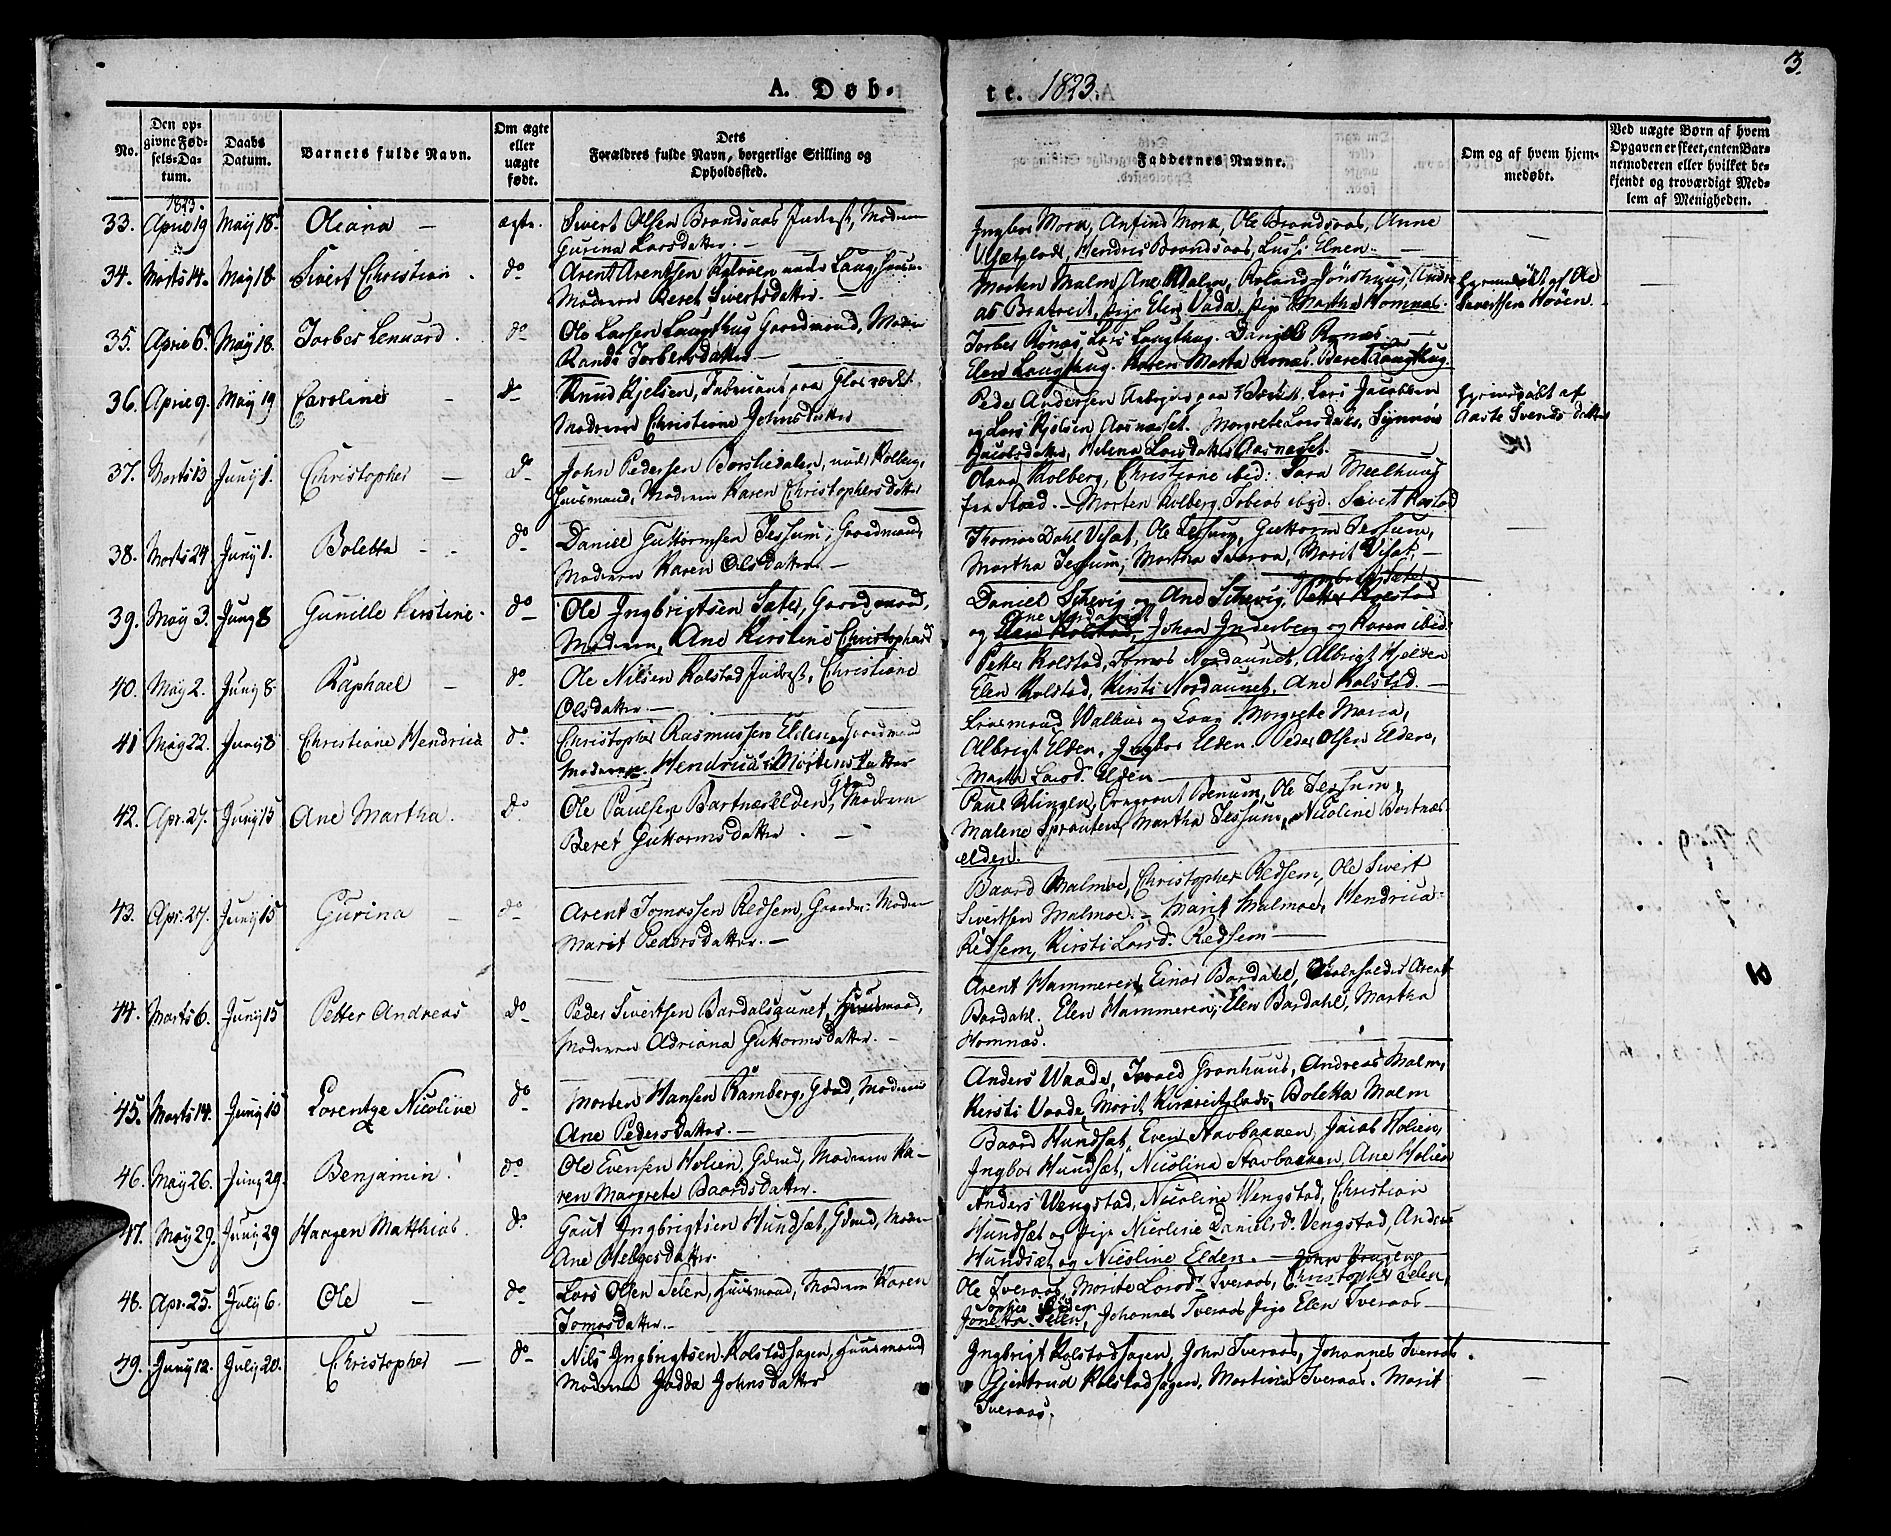 3.
A. Døb-
te. 1823.
No.
Den op-
givne Fød-
sels-Da-
tum.
Daabs
Datum.
Barnets fulde Navn.
Om ægte
eller
uægte
født.
Dets
Forældres fulde Navn, borgerlige Stilling og
Opholdssted.
Faddernes Navne.
Om og af hvem hjem-
medøbt.
Ved uægte Børn af hvem
Opgaven er skeet, enten Bar-
nemoderen eller hvilket be-
kjendt og troværdigt Med-
lem af Menigheden.
1823.
33. April 19 May 18. Oleana — ægte. Sivert Olsen Brandsaas Inderst, Modren
Gurina Larsdatter. —
Ingbor Mork, Anfind Mork, Ole Brandsaas, Anne
Hendric Brandsaas, Elnen. —
34. Marts 14. May 18 Sivert Christian. do Arent Arentsen Laug, Huusm.
Modren Beret Sivertsdatter. —
Morten Malm, Ane Malm, Roland Jønshuus, Andre
as Bratreit, pige Elen Vada, pige Martha Homnæs.
hjemmedøbt af Ole
Saverssen Høien.
35. April 6. May 18. Torber Lenuard. do Ole Larsen Laugshug Gaardmand, Modren
Rande Torbersdatter —
Torber Ronæs, Lars Laugshug. Daniel Ronæs
Elen Laugshug. Karen Marta Ronæs. Beret Laugshug
36. April 9. May 19 Caroline — do Knud Kjelsen, paa Glasværket,
Modren Christiane Johnsdatter
Peder Andersen paa Lars Jacobsen
og Lars Kjelsen Aasnæsset. Margrete Larsdatter, Synnøv
Jacobsdatter, Helena Larsdatter Aasnæsset.
hjemmedøbt af
Aaste Svends datter
37. Marts 13 Juny 1. Christopher — do John Pedersen Borshedalen, under Kolberg,
Huusmand, Modren Karen Christophersdatter
Olava Kolberg, Christiane ibid: Sara Meelhuus
fra Stoed. — Morten Kolberg, Tobias ibid. Sivert Rostad
38. Marts 24 Juny 1. Boletta — do Daniel Guttormsen Tessum, Gaardmand,
Modren Karen Olsdatter. —
Thomas Dahl Viset, Ole Tessum, Guttorm Tessum,
Martha Tessum, Martha Sveraa, Marit Viset. —
39. May 3. Juny 8 Gunille Kirstine. do Ole Ingbrigtsen Sæter, Gaardmand,
Modren, Ane Kirstine Christophersd
Ingbor Sæter
Daniel Schevig og Ane Schevig, Petter Kolstad
Ane Nordaunet
og Elen Kolstad, Johan Inderberg og Karen ibid:
40. May 2. Juny 8. Raphael — do Ole Nilsen Kolstad Inderst, Christiane
Olsdatter. —
Petter Kolstad, Tomas Nordaunet, Albrigt Hjelden
Elen Kolstad, Kirsti Nordaunet, Ane Kolstad. —
41 May 22. Juny 8 Christiane Hendrica do Christopher Rasmussen Elden, Gaardmand
Modren, Hendrica Mortensdatter
Walhus og Laug Margrete Maria,
Albrigt Elden, Ingbor Elden. Peder Olsen Elden,
Marta Larsd. Elden —
42. Apr. 27. Juny 15 Ane Martha. do Ole Paulsen Bartnæselden, Gdmd Modren
Beret Guttormsdatter. —
Paul Klingen, Benum, Ole Tessum,
Malene Sprauten, Martha Tessum, Nicoline Bartnæs
elden.
43. Apr. 27. Juny 15 Gurina — do Arent Tomassen Redsem, Gaardm. Modren
Marit Pedersdatter. —
Baard Malmoe, Christopher Redsem, Ole Sivert
Sivertsen Malmoe. — Marit Malmoe, Hendrica
Redsem, Kirsti Larsd. Redsem —
44. Marts 6. Juny 15 Petter Andreas do Peder Sivertsen Bardalsaunet, Huusmand,
Modren Adriana Guttormsdatter. —
Arent Hammeren, Einar Bardahl, Arent
Bardahl. Elen Hammeren, Elen Bardahl, Martha
Homnæs.
45. Marts 14. Juny 15 Lorentze Nicoline do Morten Hansen Ramberg, Gdmd, Modren
Ane Pedersdatter. —
Anders Waade, Iorald Grønhuus, Andreas Malm,
Kirsti Vaade, Marit Boletta Malm
46. May 26. Juny 29. Benjamin! do Ole Evensen Holien, Gdmd, Modren Ka-
ren Margrete Baardsdatter.
Baard Hundsæt, Even Stavbakken, Jacob Holien,
Ingbor Hundsæt, Nicolina Stavbakken, Ane Holien
47. May 29. Juny 29 Haagen Matthias. do Gaut Ingbrigtsen Hundsæt, Gdmd, Modren
Ane Helgesdatter.
Anders Vengstad, Nicoline Vengstad, Christian
Hundsæt og pige Nicoline Danielsd. Vengstad, Anders
Hundsæt og Nicoline Elden. —
48. Apr. 25. July 6. Ole — do Lars Olsen Selen, Huusmand, Modren Karen
Tomasdatter. —
Ole Sveraas, Marite Larsd. Sveraas, Christopher Selen,
Jonetta Selen, Johannes Sveraas Pige Elen Sveraas —
49. Juny 12. July 20. Christopher — do Nils Ingbrigtsen Kolstadhagen, Huusmand
Modren Jodda Johnsdatter
Ingbrigt Kolstadhagen, John Sveraas, Johannes Sveraas.
Gjertrud Kolstadhagen, Martina Sveraas. Marit
Sveraas.